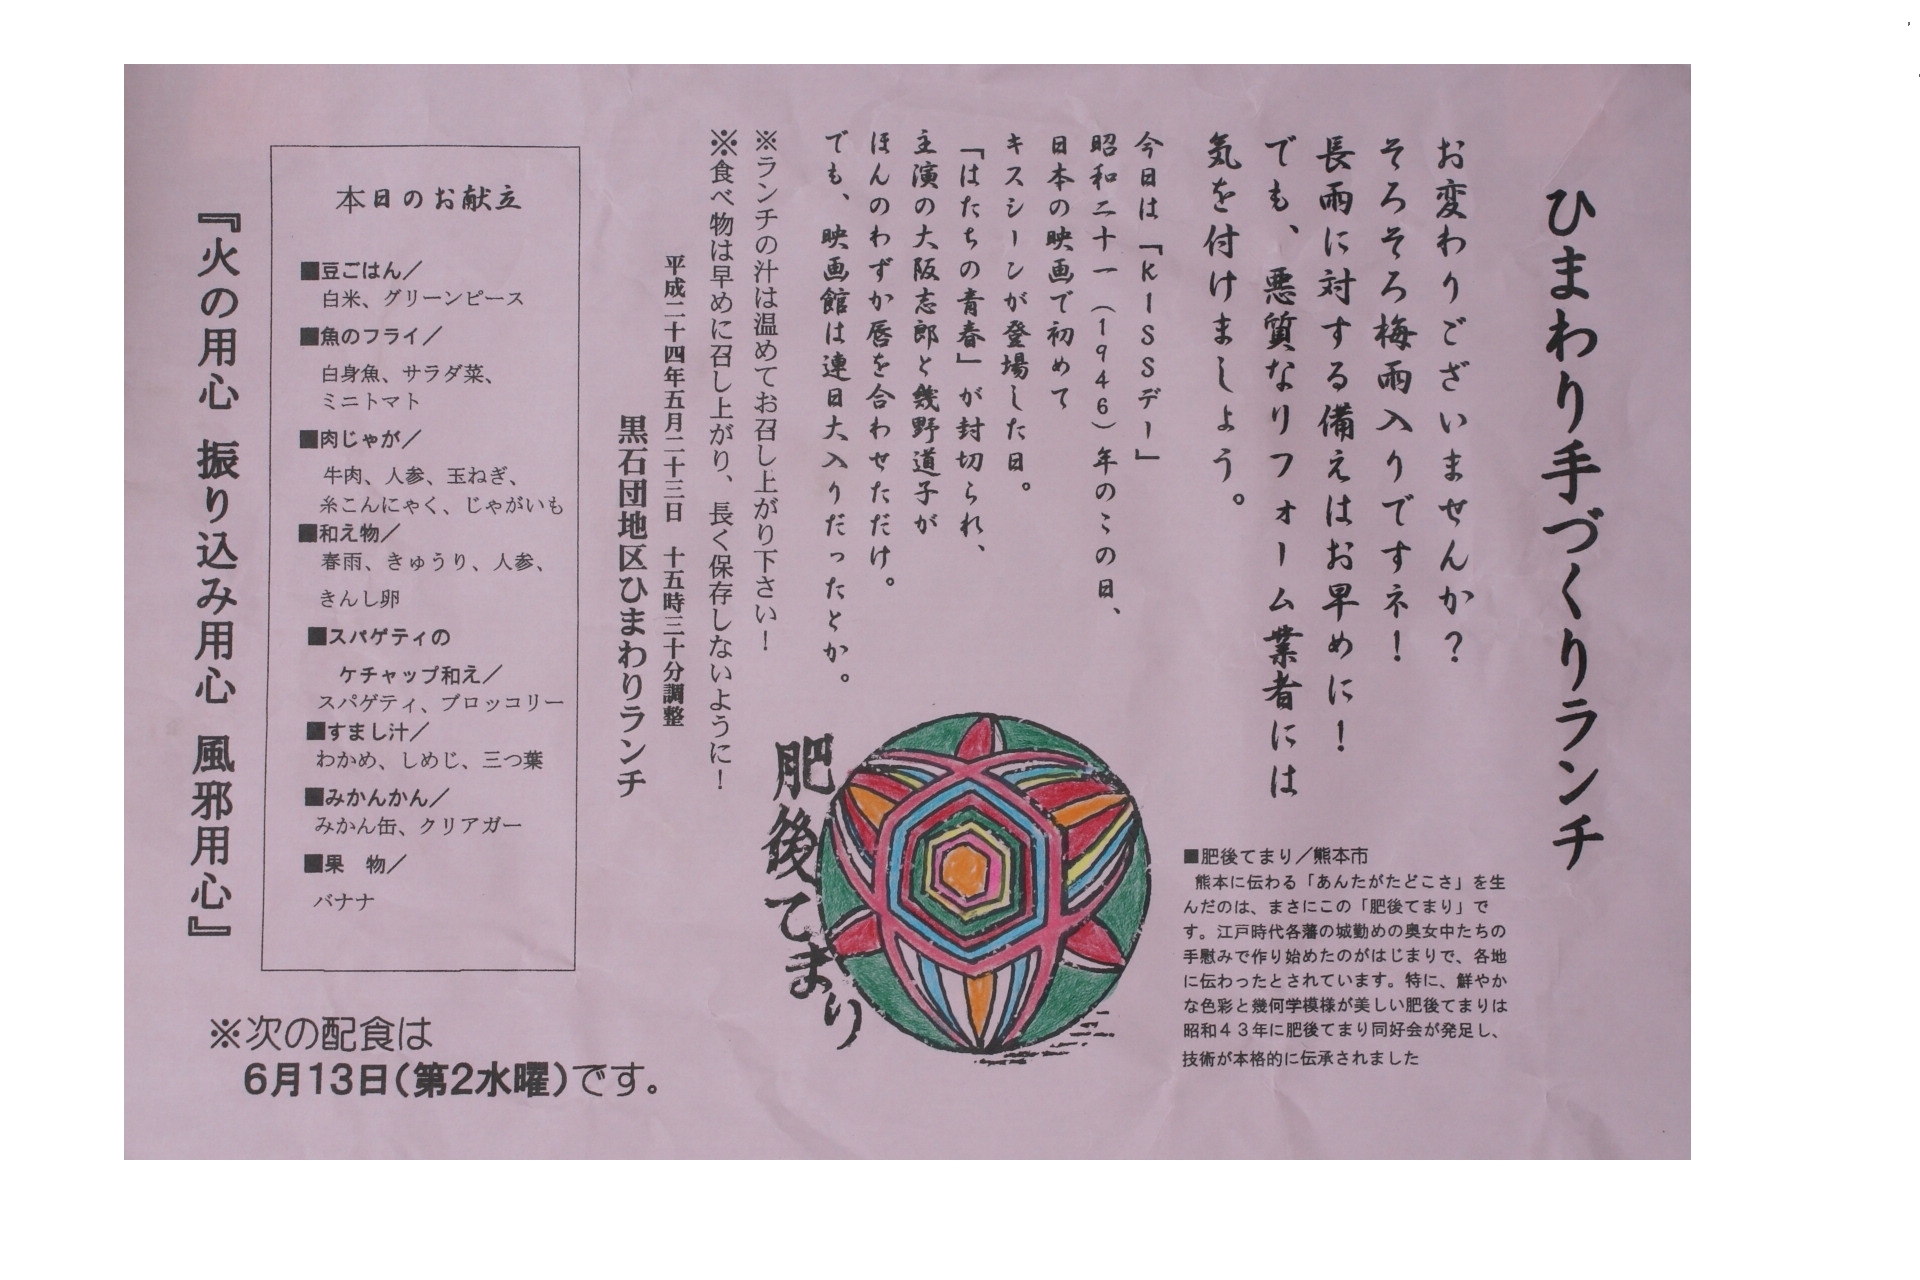 ひまわり手づくりランチ
お変わりございませんか?
そろそろ梅雨入りですネ!
長雨に対する備えはお早めに!
でも、悪質なリフォーム業者には
気を付けましょう。
今日は「KISSデー」
昭和二十一(1946)年のこの日、
日本の映画で初めて
キスシーンが登場した日。
「はたちの青春」が封切られ、
主演の大阪志郎と幾野道子が
ほんのわずか唇を合わせただけ。
でも、映画館は連日大入りだったとか。
※ランチの汁は温めてお召し上がり下さい!
※食べ物は早めに召し上がり、長く保存しないように!
平成二十四年五月二十三日 十五時三十分調整
黒石団地区ひまわりランチ
■肥後てまり/熊本市
熊本に伝わる「あんたがたどこさ」を生
んだのは、まさにこの「肥後てまり」で
す。江戸時代各藩の城勤めの奥女中たちの
手慰みで作り始めたのがはじまりで、各地
に伝わったとされています。特に、鮮やか
な色彩と幾何学模様が美しい肥後てまりは
昭和43年に肥後てまり同好会が発足し、
技術が本格的に伝承されました
肥後てまり
本日のお献立
■豆ごはん/
白米、グリーンピース
■魚のフライ/
白身魚、サラダ菜、
ミニトマト
■肉じゃが/
牛肉、人参、玉ねぎ、
糸こんにゃく、じゃがいも
■和え物/
春雨、きゅうり、人参、
きんし卵
■スパゲティの
ケチャップ和え/
スパゲティ、ブロッコリー
■すまし汁/
わかめ、しめじ、三つ葉
■みかんかん/
みかん缶、クリアガー
■果 物/
バナナ
『火の用心 振り込み用心 風邪用心』
※次の配食は
6月13日(第2水曜)です。